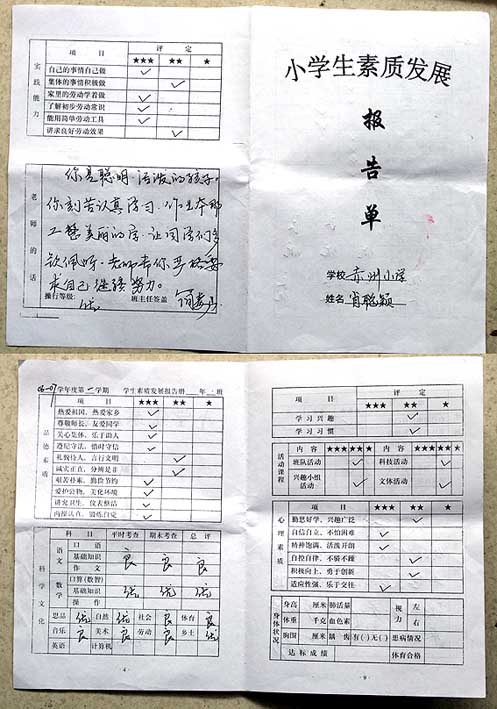 项 目 评 定
★★★ ★★ ★
实践能力
自己的事情自己做 ✓
集体的事情积极做 ✓
家里的劳动学着做 ✓
了解初步劳动常识 ✓
能用简单劳动工具 ✓
讲求良好劳动效果 ✓
老师的话
你是聪明、活泼的孩子。
你刻苦认真学习,作业本那
工整美丽的字,让同学们多
钦佩呀。老师希你严格要
求自己继续努力。
操行等级: 优 班主任签盖
小学生素质发展
报
告
单
学校 赤州小学
姓名 肖聪颖
06-07学年度第一学期 学生素质发展报告册 年 班
项 目 ★★★ ★★ ★
品德素质
热爱祖国、热爱家乡 ✓
尊敬师长、友爱同学 ✓
关心集体、乐于助人 ✓
遵纪守法、惜时守信 ✓
礼貌待人、言行文明 ✓
诚实正直、分辨是非 ✓
艰苦朴素、勤俭节约 ✓
爱护公物、美化环境 ✓
讲究卫生、仪表整洁 ✓
科学文化
科 目 平时考查 期末考查 总 评
语文
口 语
基础知识 良 良 良
作 文
数学
口算(数智)
基础知识 优 优 优
操 作
思品 优 自然 优 社会 良 体育 良
音乐 良 美术 良 劳动 良 乡土 优
英语 计算机
·4·
项 目 评 定
★★★ ★★ ★
学 习 兴 趣 ✓
学 习 习 惯 ✓
活动课程
内 容 ★★★ ★★ ★ 内 容 ★★★ ★★ ★
班队活动 ✓ 科技活动 ✓
兴趣小组活动 ✓ 文体活动 ✓
项 目 ★★★ ★★ ★
心理素质
勤思好学、兴趣广泛 ✓
自信自立、不怕困难 ✓
精神饱满、活泼开朗 ✓
自控自律、不骄不躁 ✓
积极向上、勇于创新 ✓
适应性强、乐于交往 ✓
身体状况
身高 厘米 肺活量 视力 左
体重 千克 血色素 右
胸围 厘米 龋 齿 有( )无( ) 患病情况
达 标 成 绩 体育合格